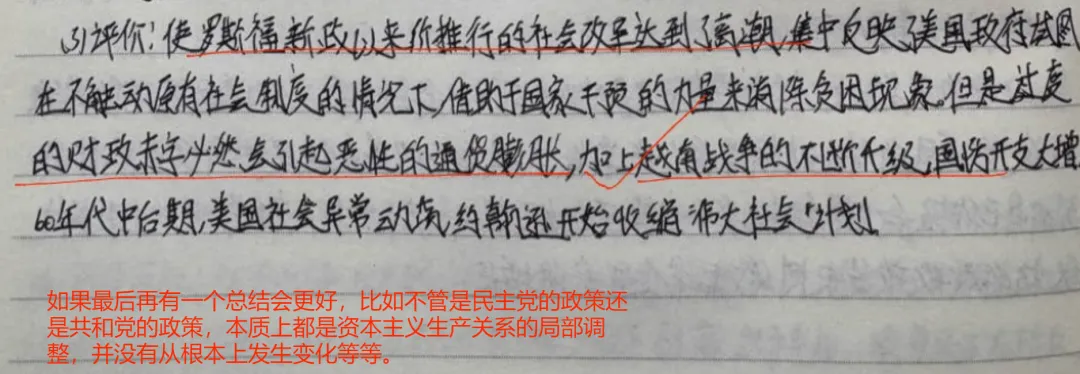 (3)评价：使罗斯福新政以来价推行的社会改革达到了高潮,集中反映了美国政府试图
在不触动原有社会制度的情况下,借助于国家干预的力量来消除贫困现象。但是过度
的财政赤字必然会引起恶性的通货膨胀,加上越南战争的不断升级,国防开支大增
60年代中后期,美国社会异常动荡,约翰逊开始收缩"伟大社会"计划。
如果最后再有一个总结会更好，比如不管是民主党的政策还
是共和党的政策，本质上都是资本主义生产关系的局部调
整，并没有从根本上发生变化等等。